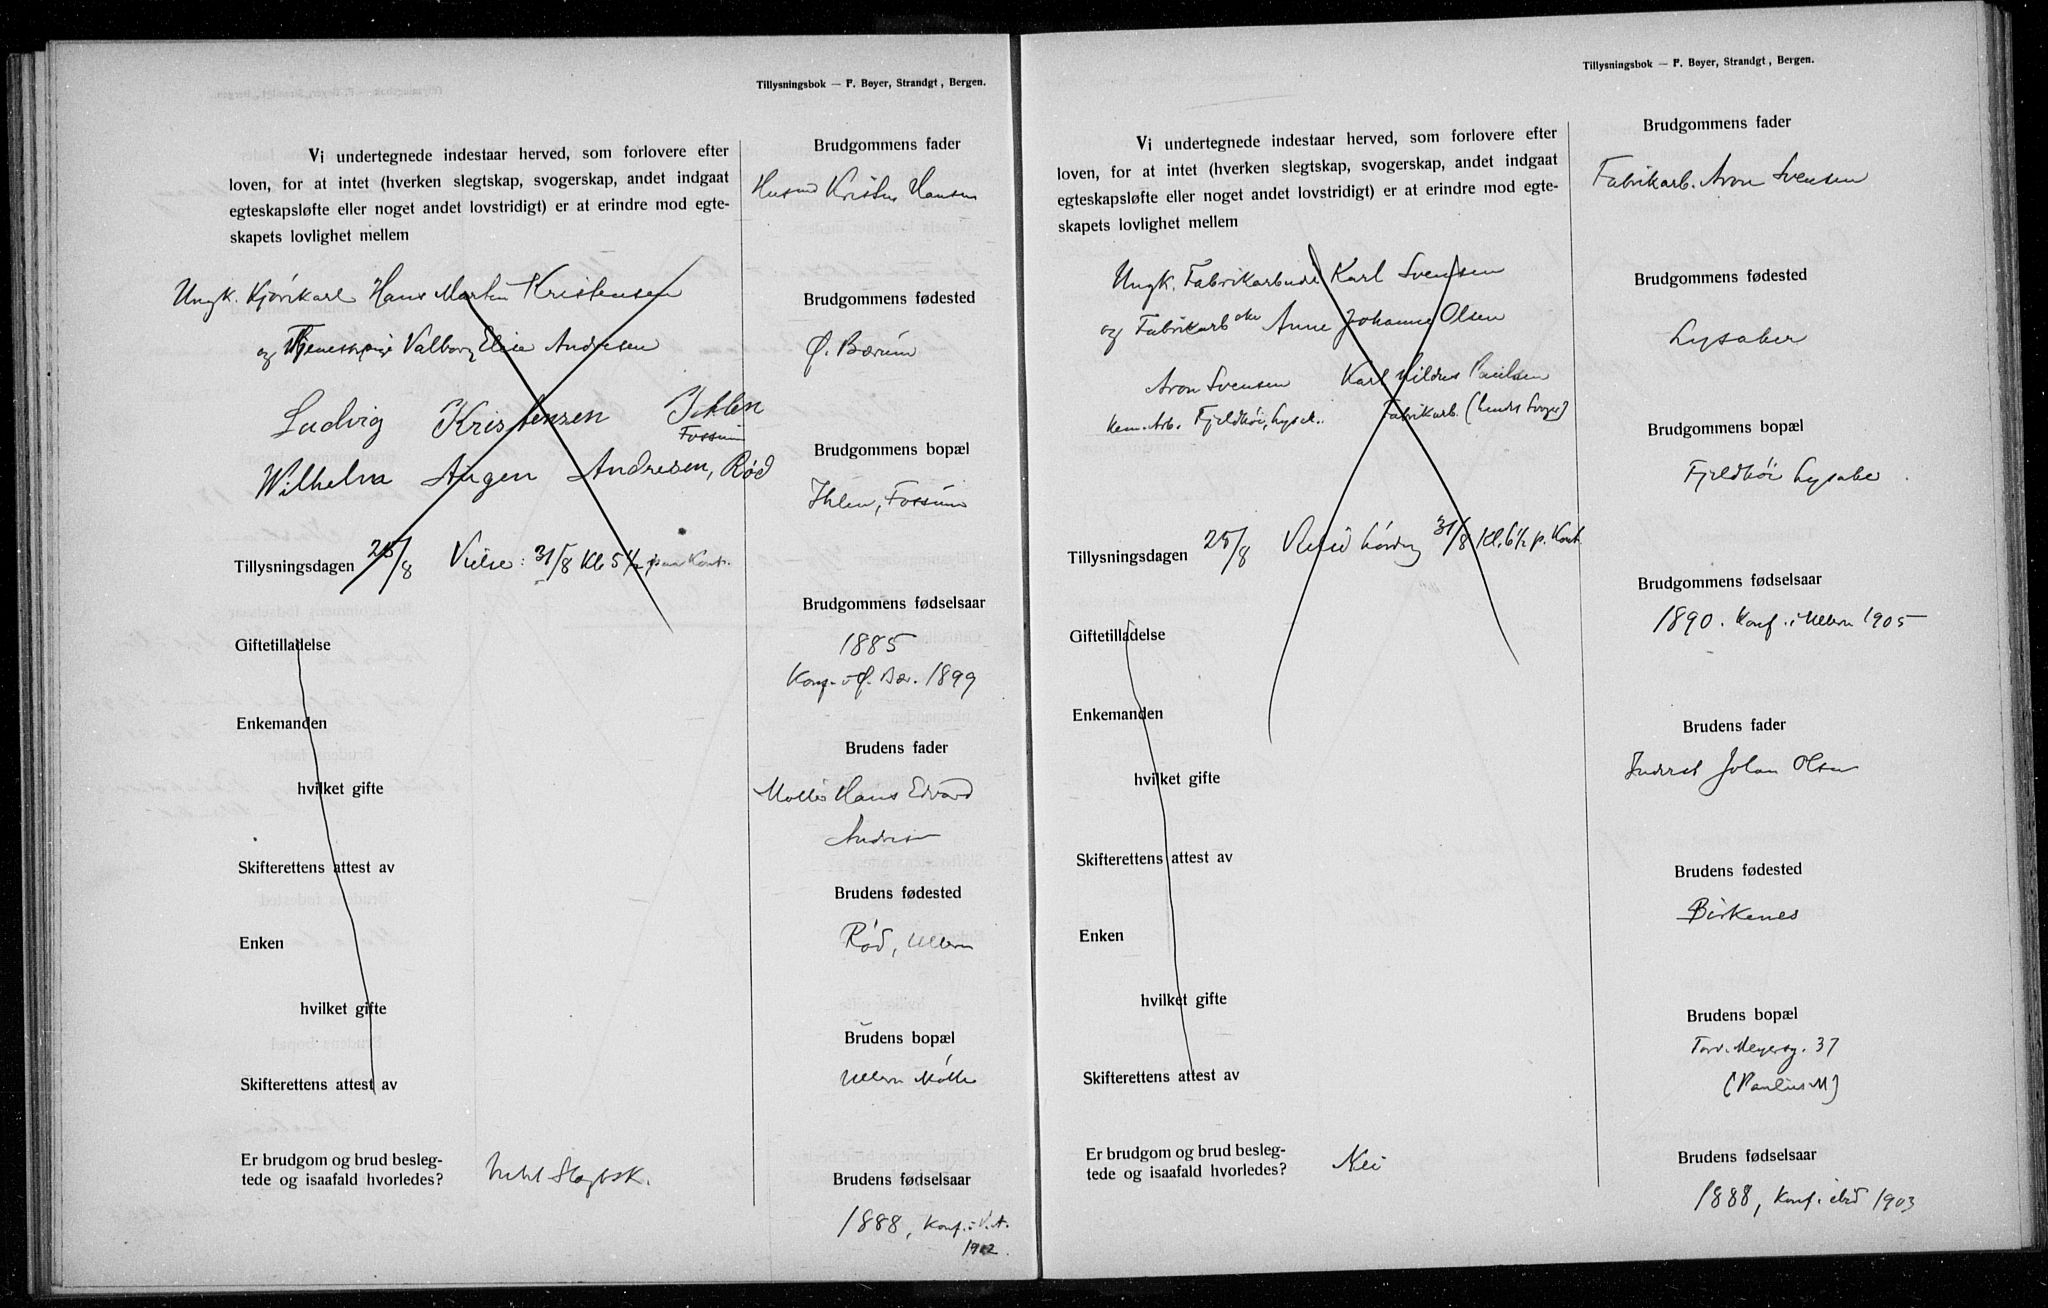 Tillysningsbok — F. Bøyer, Strandgt, Bergen.
Vi undertegnede indestaar herved, som forlovere efter
loven, for at intet (hverken slegtskap, svogerskap, andet indgaat
egteskapsløfte eller noget andet lovstridigt) er at erindre mod egte-
skapets lovlighet mellem
Ungk. Hans Martin Kristensen
og Valborg Elise Andresen
Ludvig Kristensen Ihlen
Fossum
Wilhelm Andresen, Rød
Tillysningsdagen 25/8 Vielse: 31/8 Kl 5 1/2 paa Kont.
Giftetilladelse
Enkemanden
hvilket gifte
Skifterettens attest av
Enken
hvilket gifte
Skifterettens attest av
Er brudgom og brud besleg-
tede og isaafald hvorledes?
Brudgommens fader
Kristen Hansen
Brudgommens fødested
Ø. Bærum
Brudgommens bopæl
Ihlen, Fossum
Brudgommens fødselsaar
1885
Konf. i Ø. Bær. 1899
Brudens fader
Hans Edvard
Andresen
Brudens fødested
Rød, Ullern
Brudens bopæl
Ullern Mølle
Brudens fødselsaar
1888, Konf. i V. A.
1902.
Tillysningsbok — F. Bøyer, Strandgt, Bergen.
Vi undertegnede indestaar herved, som forlovere efter
loven, for at intet (hverken slegtskap, svogerskap, andet indgaat
egteskapsløfte eller noget andet lovstridigt) er at erindre mod egte-
skapets lovlighet mellem
Ungk. Fabrikarbeide Karl Svensen
og Fabrikarb. Anne Johanne Olsen
Aron Svensen Karl Paulsen
Arb. Fjeldhøi, Lysak. Fabrikarb.
Tillysningsdagen 25/8 Lørdag 31/8 Kl. 6 1/2 p. Kont.
Giftetilladelse
Enkemanden
hvilket gifte
Skifterettens attest av
Enken
hvilket gifte
Skifterettens attest av
Er brudgom og brud besleg-
tede og isaafald hvorledes? Nei
Brudgommens fader
Fabrikarb. Aron Svensen
Brudgommens fødested
Lysaker
Brudgommens bopæl
Fjeldhøi Lysaker
Brudgommens fødselsaar
1890. Konf. i Ullern 1905
Brudens fader
Inderst Johan Olsen
Brudens fødested
Birkenes
Brudens bopæl
Torv. Meyersg. 37
(Paulius M)
Brudens fødselsaar
1888, Konf. i 1903